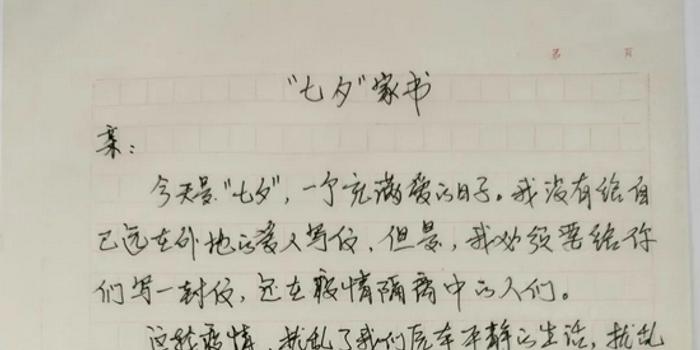 第 页
“七夕”家书
亲：
今天是“七夕”，一个充满爱的日子。我没有给自
己远在外地的爱人写信，但是，我必须要给你
们写一封信，还在疫情隔离中的人们。
这轮疫情，扰乱了我们原本平静的生活，扰乱